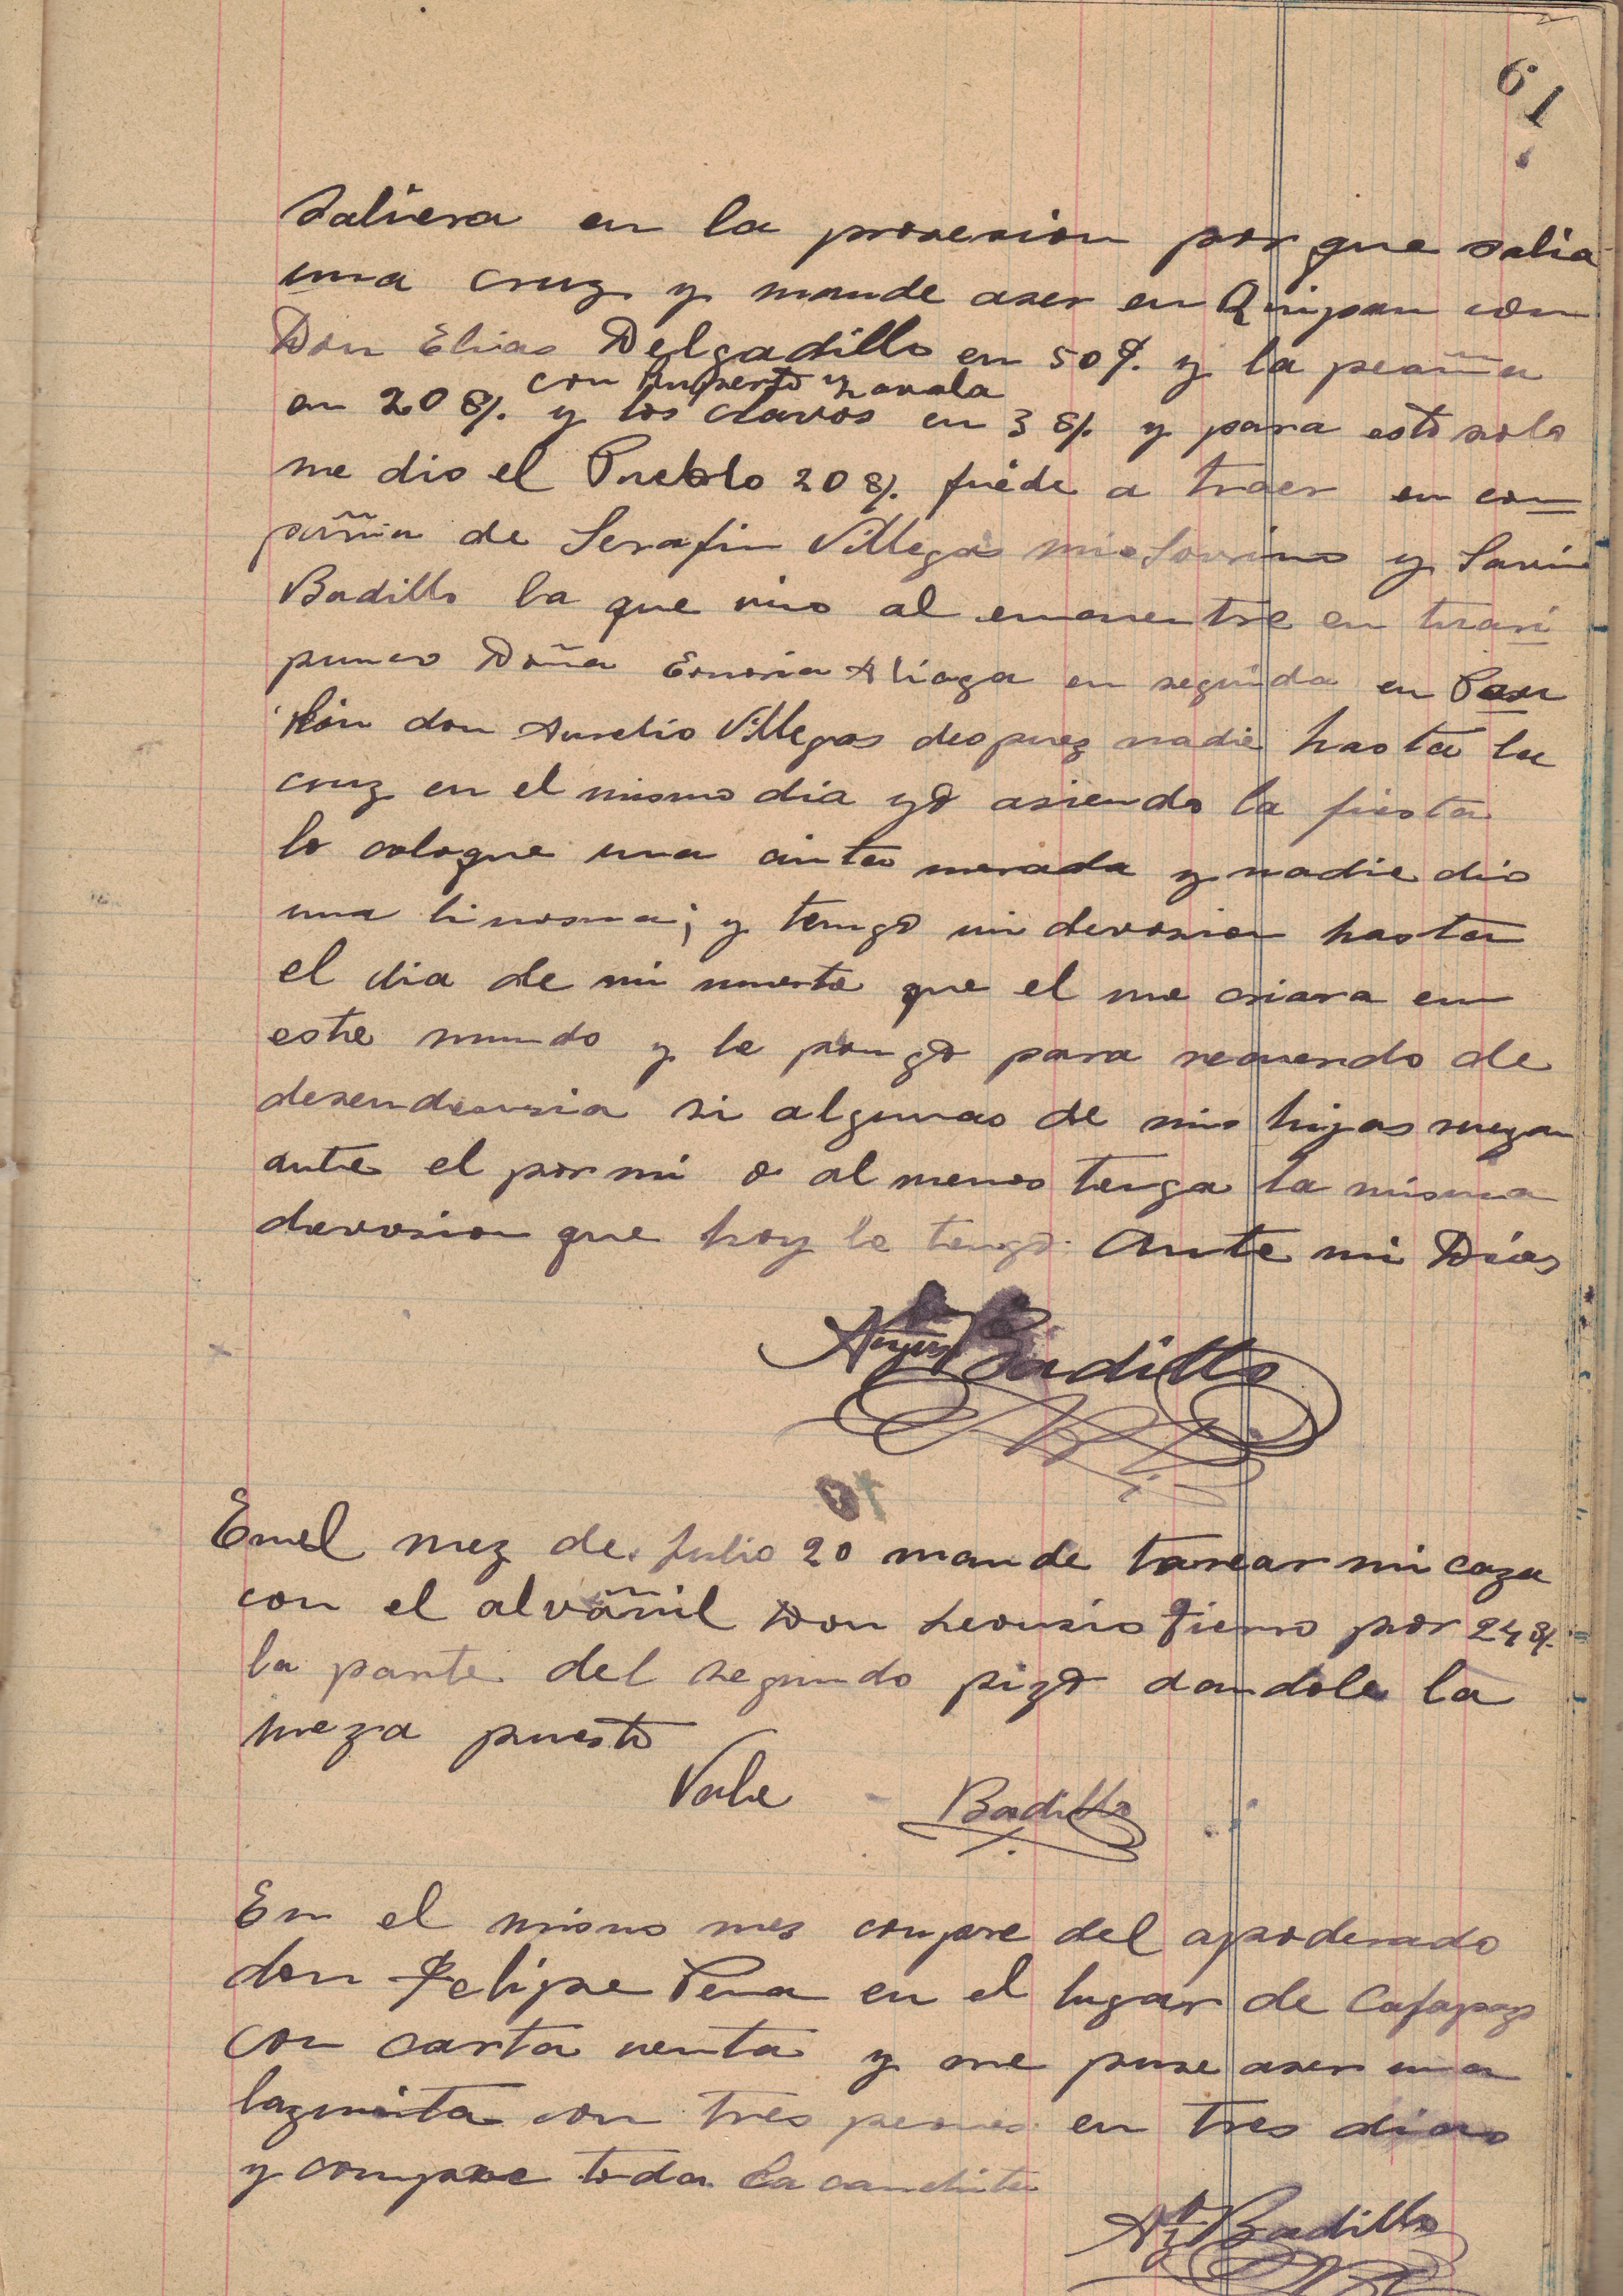 61
saliera en la prosecion por que salia
una cruz y mande aser en Quipan con
Don Elias Delgadillo en 50 $. y la peaña
con Ruperto Zavala
en 20 $/. y los clavos en 3 $/. y para esto solo
me dio el Pueblo 20 $/. fuéde a traer en com
pañia de Serafin Villegas mi sovrino y Savin
Badillo la que vino al encuentre en
punco Doña Aliaga en seguida en Pan
kón don Aurelio Villegas despuez nadie hasta la
cruz en el mismo dia yo asiendo la fiesta
lo coloque una cinta morada y nadie dio
una linosna; y tengo mi devosion hasta
el dia de mi muerte que el me criara en
este mundo y le pongo para recuerdo de
desendensia si algunas de mis hijas ruegan
ante el por mi o al menos tenga la misma
devosion que hoy le tengo. Ante mi Dios
Badillo
Enel mez de Julio 20 mande tarear mi caza
con el alvañil Don Leonsio Fierro por 24 $/.
la parte del segundo pizo dandole la
meza puesto
Vale Badillo
En el mismo mes compre del apoderado
don Felipe Pena en el lugar de
con carta venta y me puse aser una
lagunita con tres peones en tres dias
y compre toda la canchita
Badillo